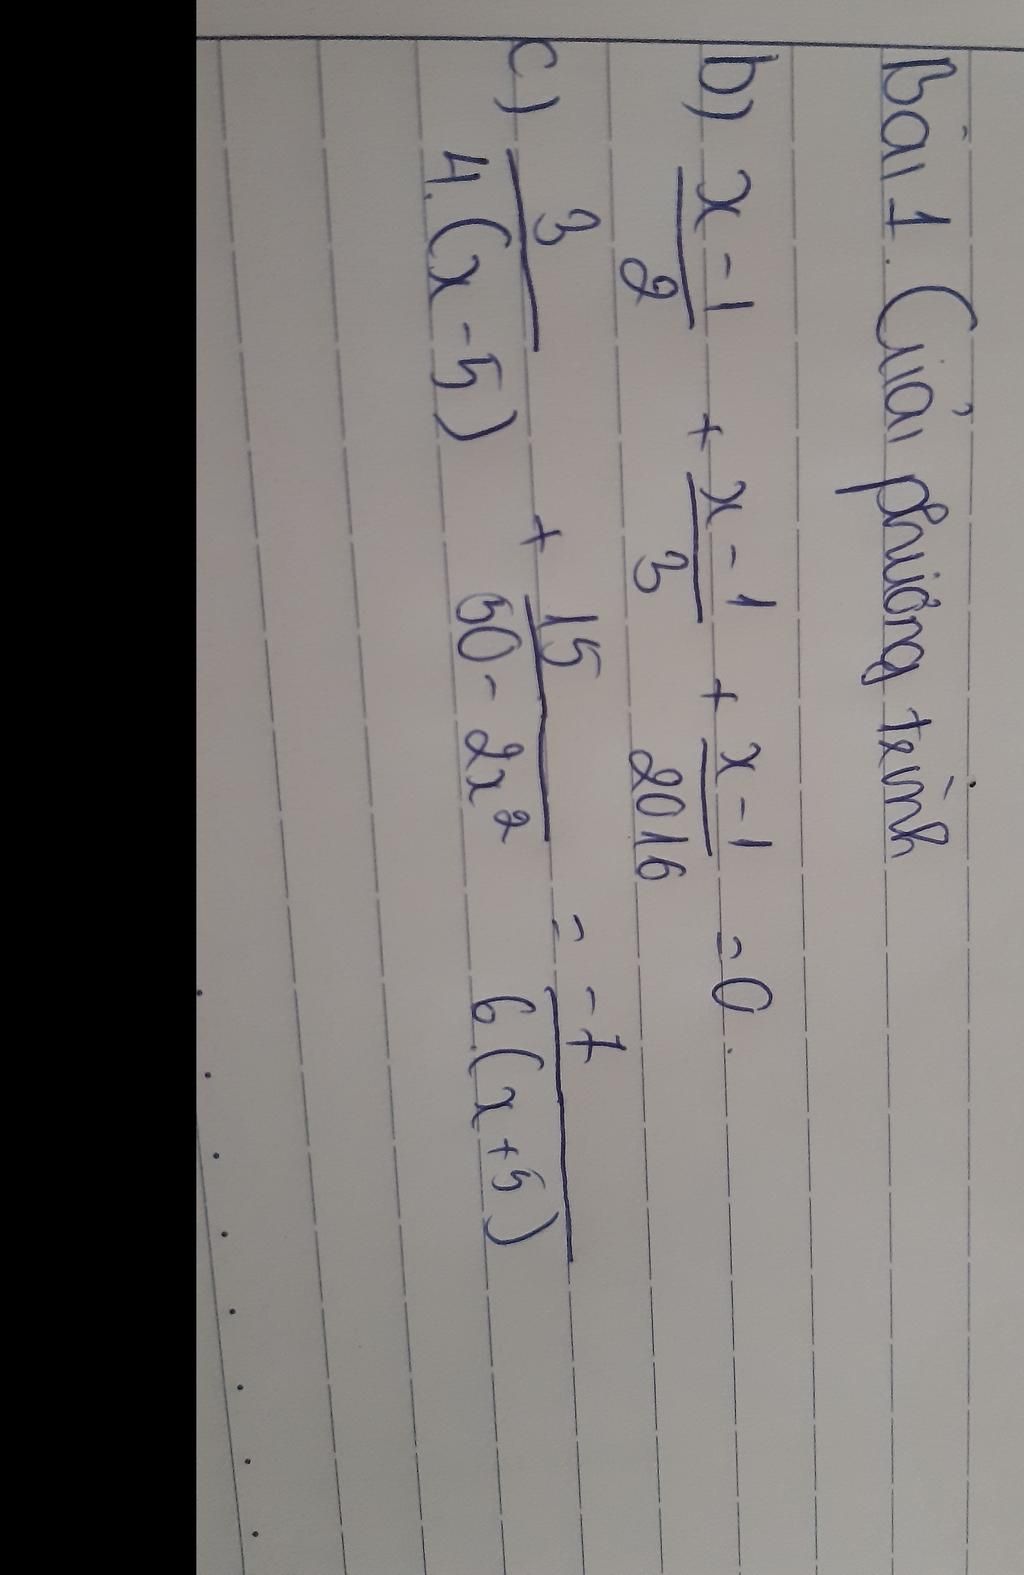 Bài 1. Giải phương trình
b) x-1/2 + x-1/3 + x-1/2016 = 0.
c) 3/4.(x-5) + 15/50-2x² = -7/6.(x+5)